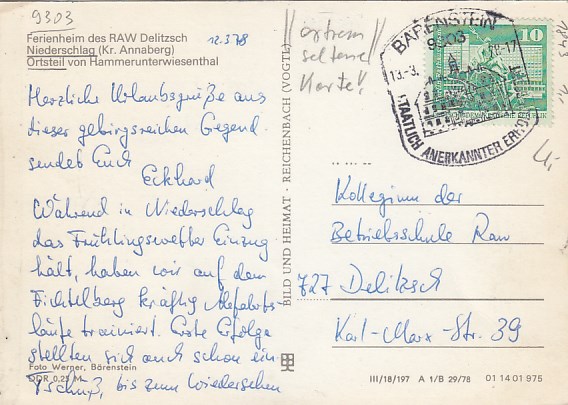 9303
Ferienheim des RAW Delitzsch
Niederschlag (Kr. Annaberg)
Ortsteil von Hammerunterwiesenthal
12.3.78
Herzliche Urlaubsgrüße aus
dieser gebirgsreichen Gegend
sendet Euch
Eckhard
Während in Niederschlag
das Frühlingswetter Einzug
hält, haben wir auf dem
Fichtelberg kräftig Abfahrts-
läufe trainiert. Erste Erfolge
stellten sich auch schon ein.
Tschüß, bis zum Wiedersehen
Foto Werner, Bärenstein
DDR 0,25 M
BILD UND HEIMAT · REICHENBACH (VOGTL)
extrem
seltene
Karte!
BÄRENSTEIN
9303
13.-3.
78-17
STAATLICH ANERKANNTER
10
1843
Kolleginnen der
Betriebsschule Raw
727 Delitzsch
Karl-Marx-Str. 39
III/18/197 A 1/B 29/78 01 14 01 975